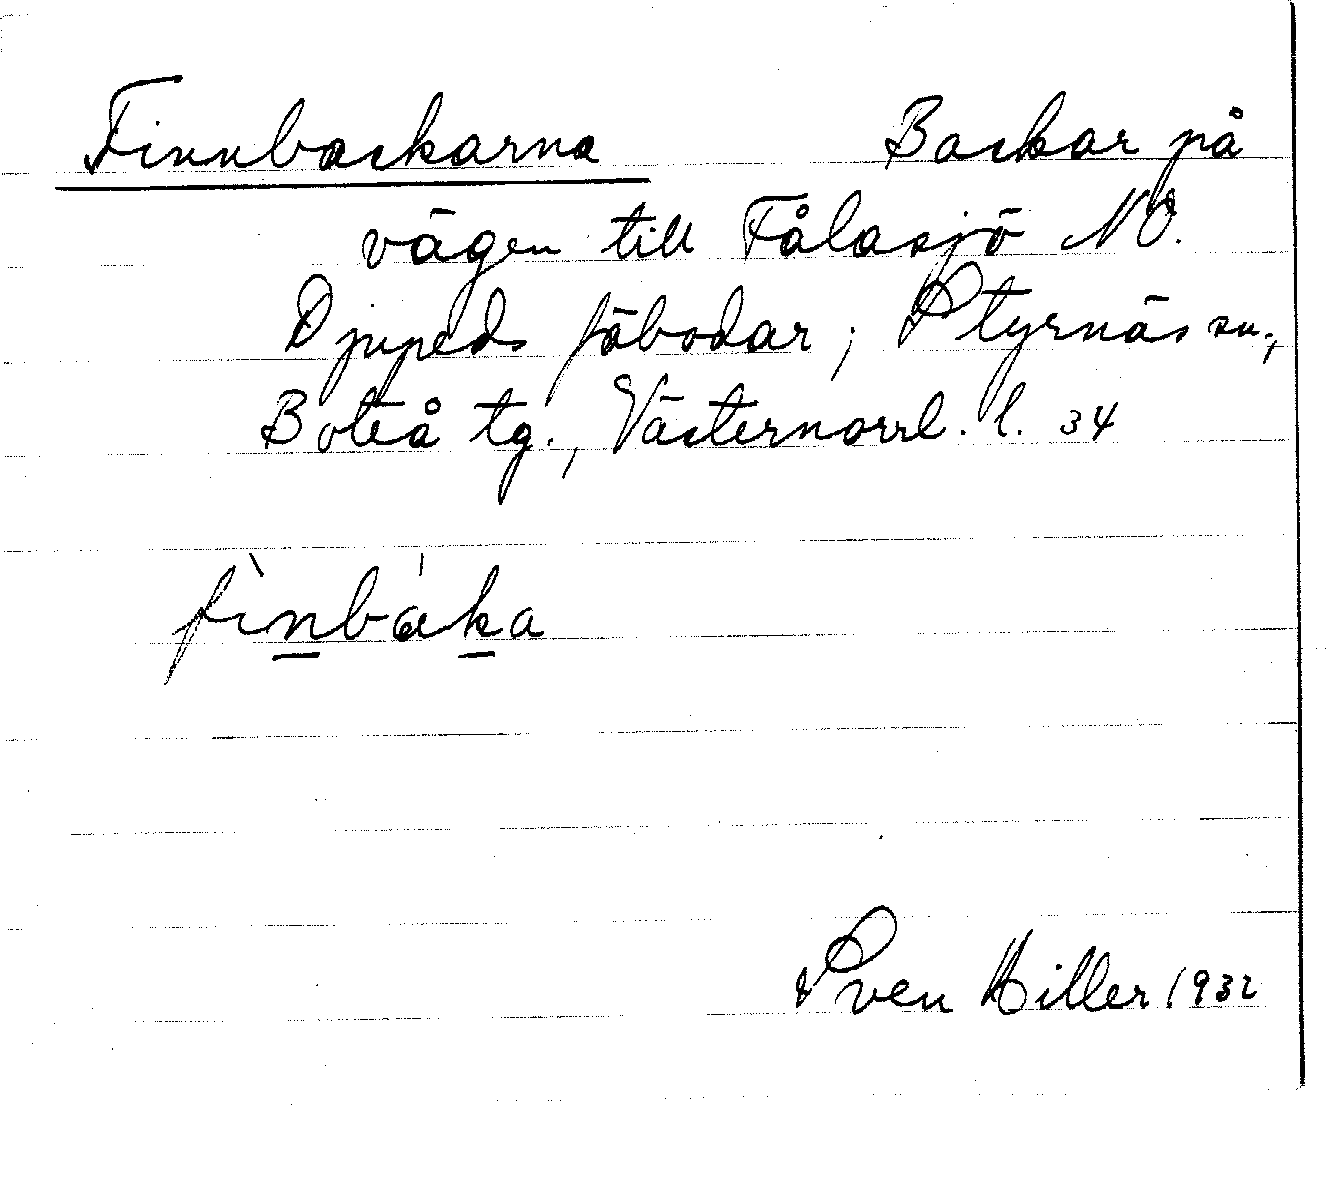 Finnbackarna Backar på
vägen till Fålasjö NV.
Djupeds fäbodar; Styrnäs sn.,
Boteå tg., Västernorrl. l. 34
fìnbáka
Sven Hiller 1932